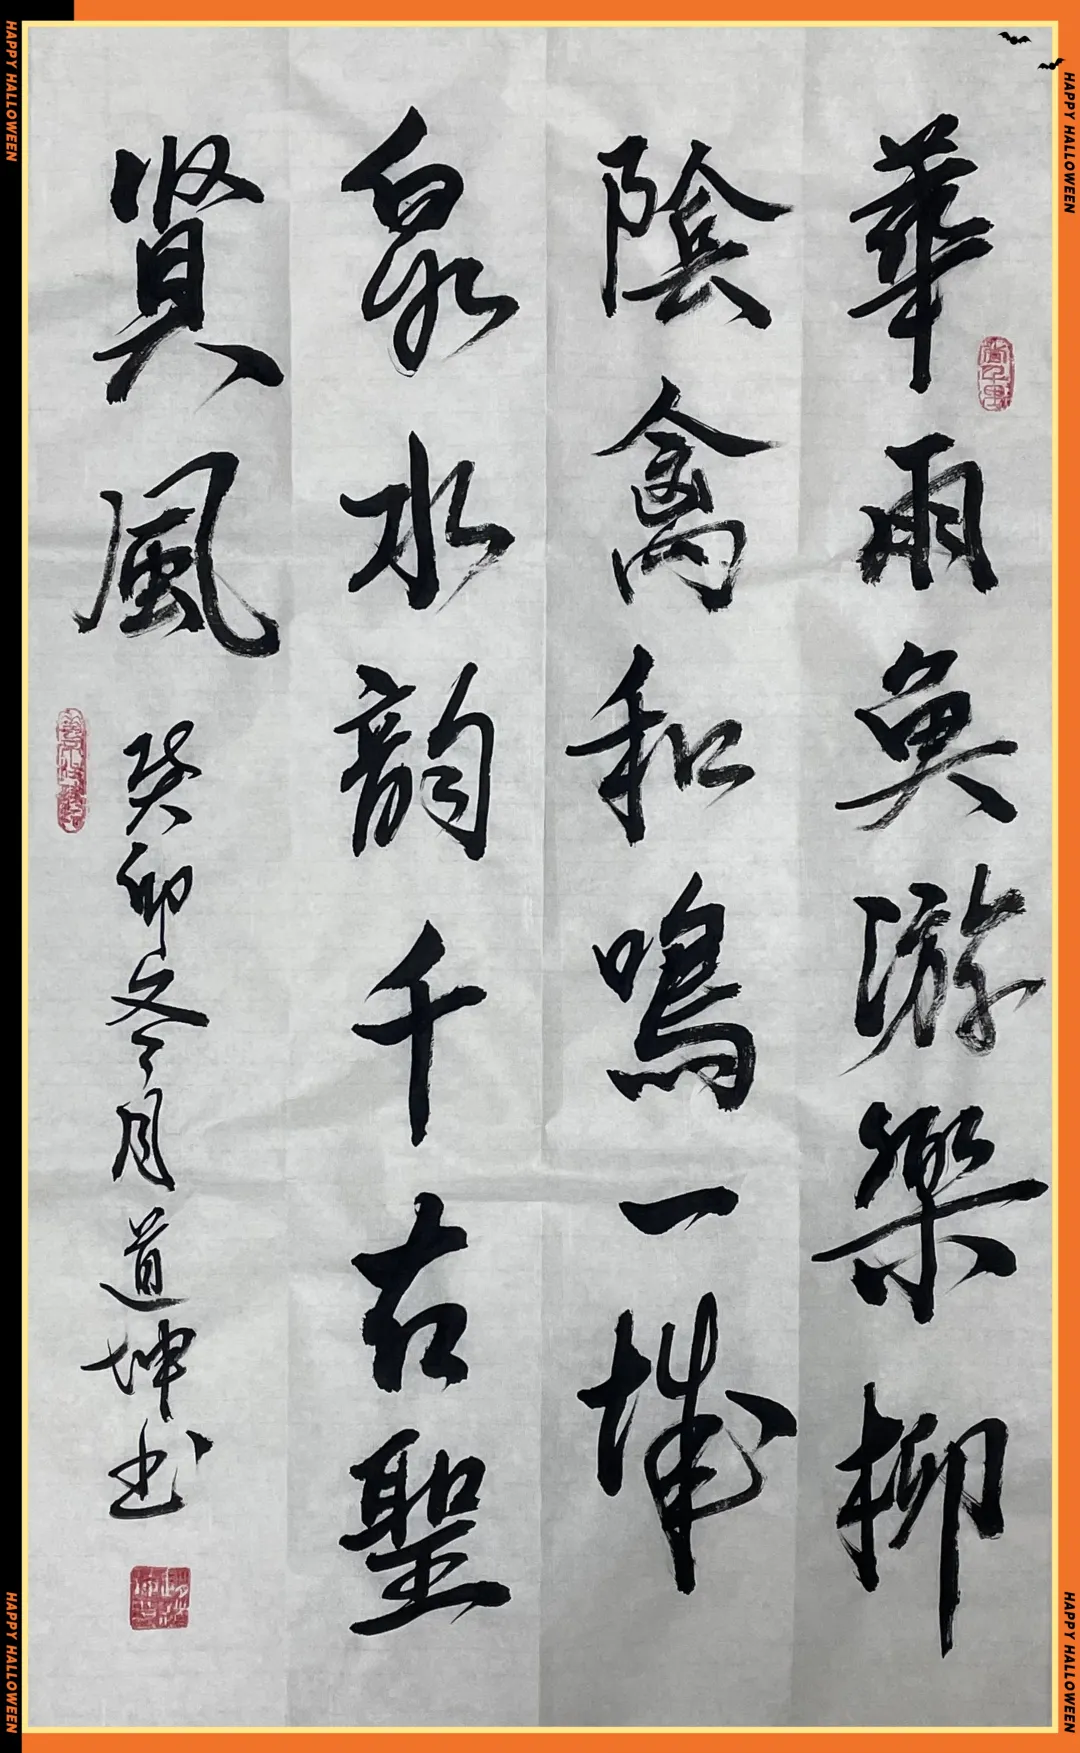 華雨魚游樂柳
陰禽和鳴一城
泉水韵千古聖
賢風
癸卯冬月道坤书
HAPPY HALLOWEEN
HAPPY HALLOWEEN
HAPPY HALLOWEEN
HAPPY HALLOWEEN